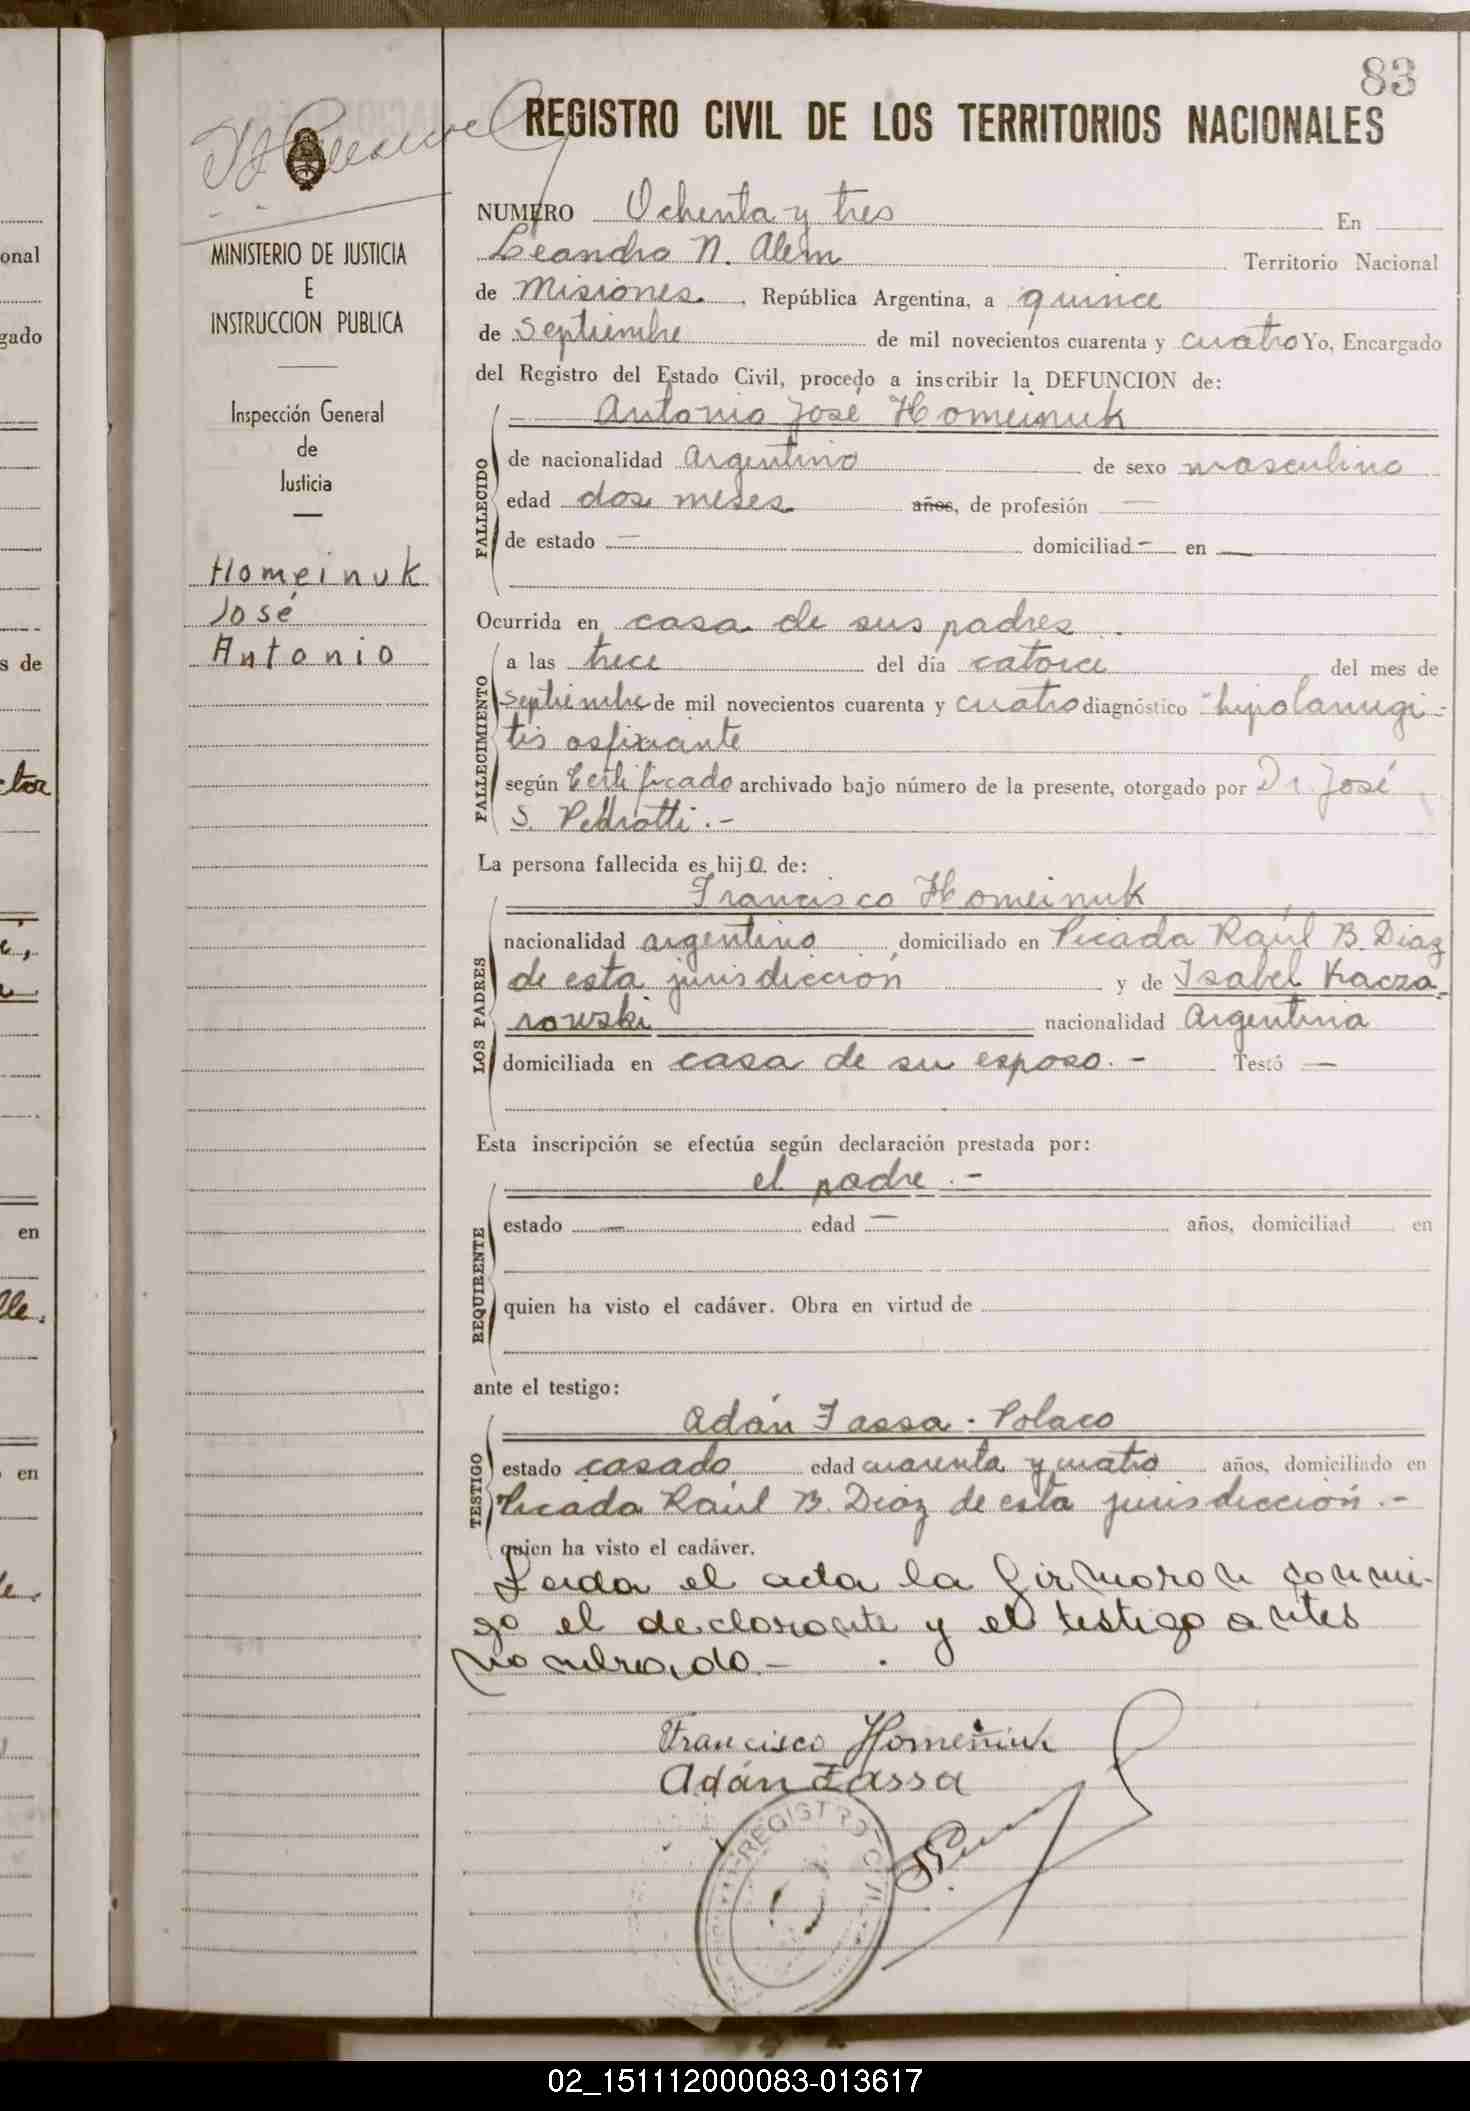 83
REGISTRO CIVIL DE LOS TERRITORIOS NACIONALES
MINISTERIO DE JUSTICIA
E
INSTRUCCION PUBLICA
Inspección General
de
Justicia
Homeinuk
José
Antonio
NUMERO Ochenta y tres En
Leandro N. Alem Territorio Nacional
de Misiones, República Argentina, a quince
de Septiembre de mil novecientos cuarenta y cuatro Yo, Encargado
del Registro del Estado Civil, procedo a inscribir la DEFUNCION de:
Antonio José Homeinuk
FALLECIDO
de nacionalidad Argentino de sexo masculino
edad dos meses años, de profesión —
de estado — domiciliad - en —
Ocurrida en casa de sus padres.
FALLECIMIENTO
a las trece del día catorce del mes de
septiembre de mil novecientos cuarenta y cuatro diagnóstico
asfixiante
según Certificado archivado bajo número de la presente, otorgado por Dr. José
S. Pedrotti.-
La persona fallecida es hijo de:
Francisco Homeinuk
LOS PADRES
nacionalidad argentino, domiciliado en Picada Raúl B. Diaz
de esta jurisdicción y de Isabel Kacza-
rowski nacionalidad Argentina
domiciliada en casa de su esposo.- Testó —
Esta inscripción se efectúa según declaración prestada por:
el padre.-
REQUIRENTE
estado — edad — años, domiciliad en
quien ha visto el cadáver. Obra en virtud de
ante el testigo:
Adán Fassa - Polaco
TESTIGO
estado casado edad cuarenta y cuatro años, domiciliado en
Picada Raúl B. Diaz de esta jurisdicción.-
quien ha visto el cadáver.
Leida el acta la firmaron conmi-
go el declarante y el testigo antes
nombrado.-
Francisco Homeniuk
Adán Fassa
REGISTRO CIVIL
02_151112000083-013617